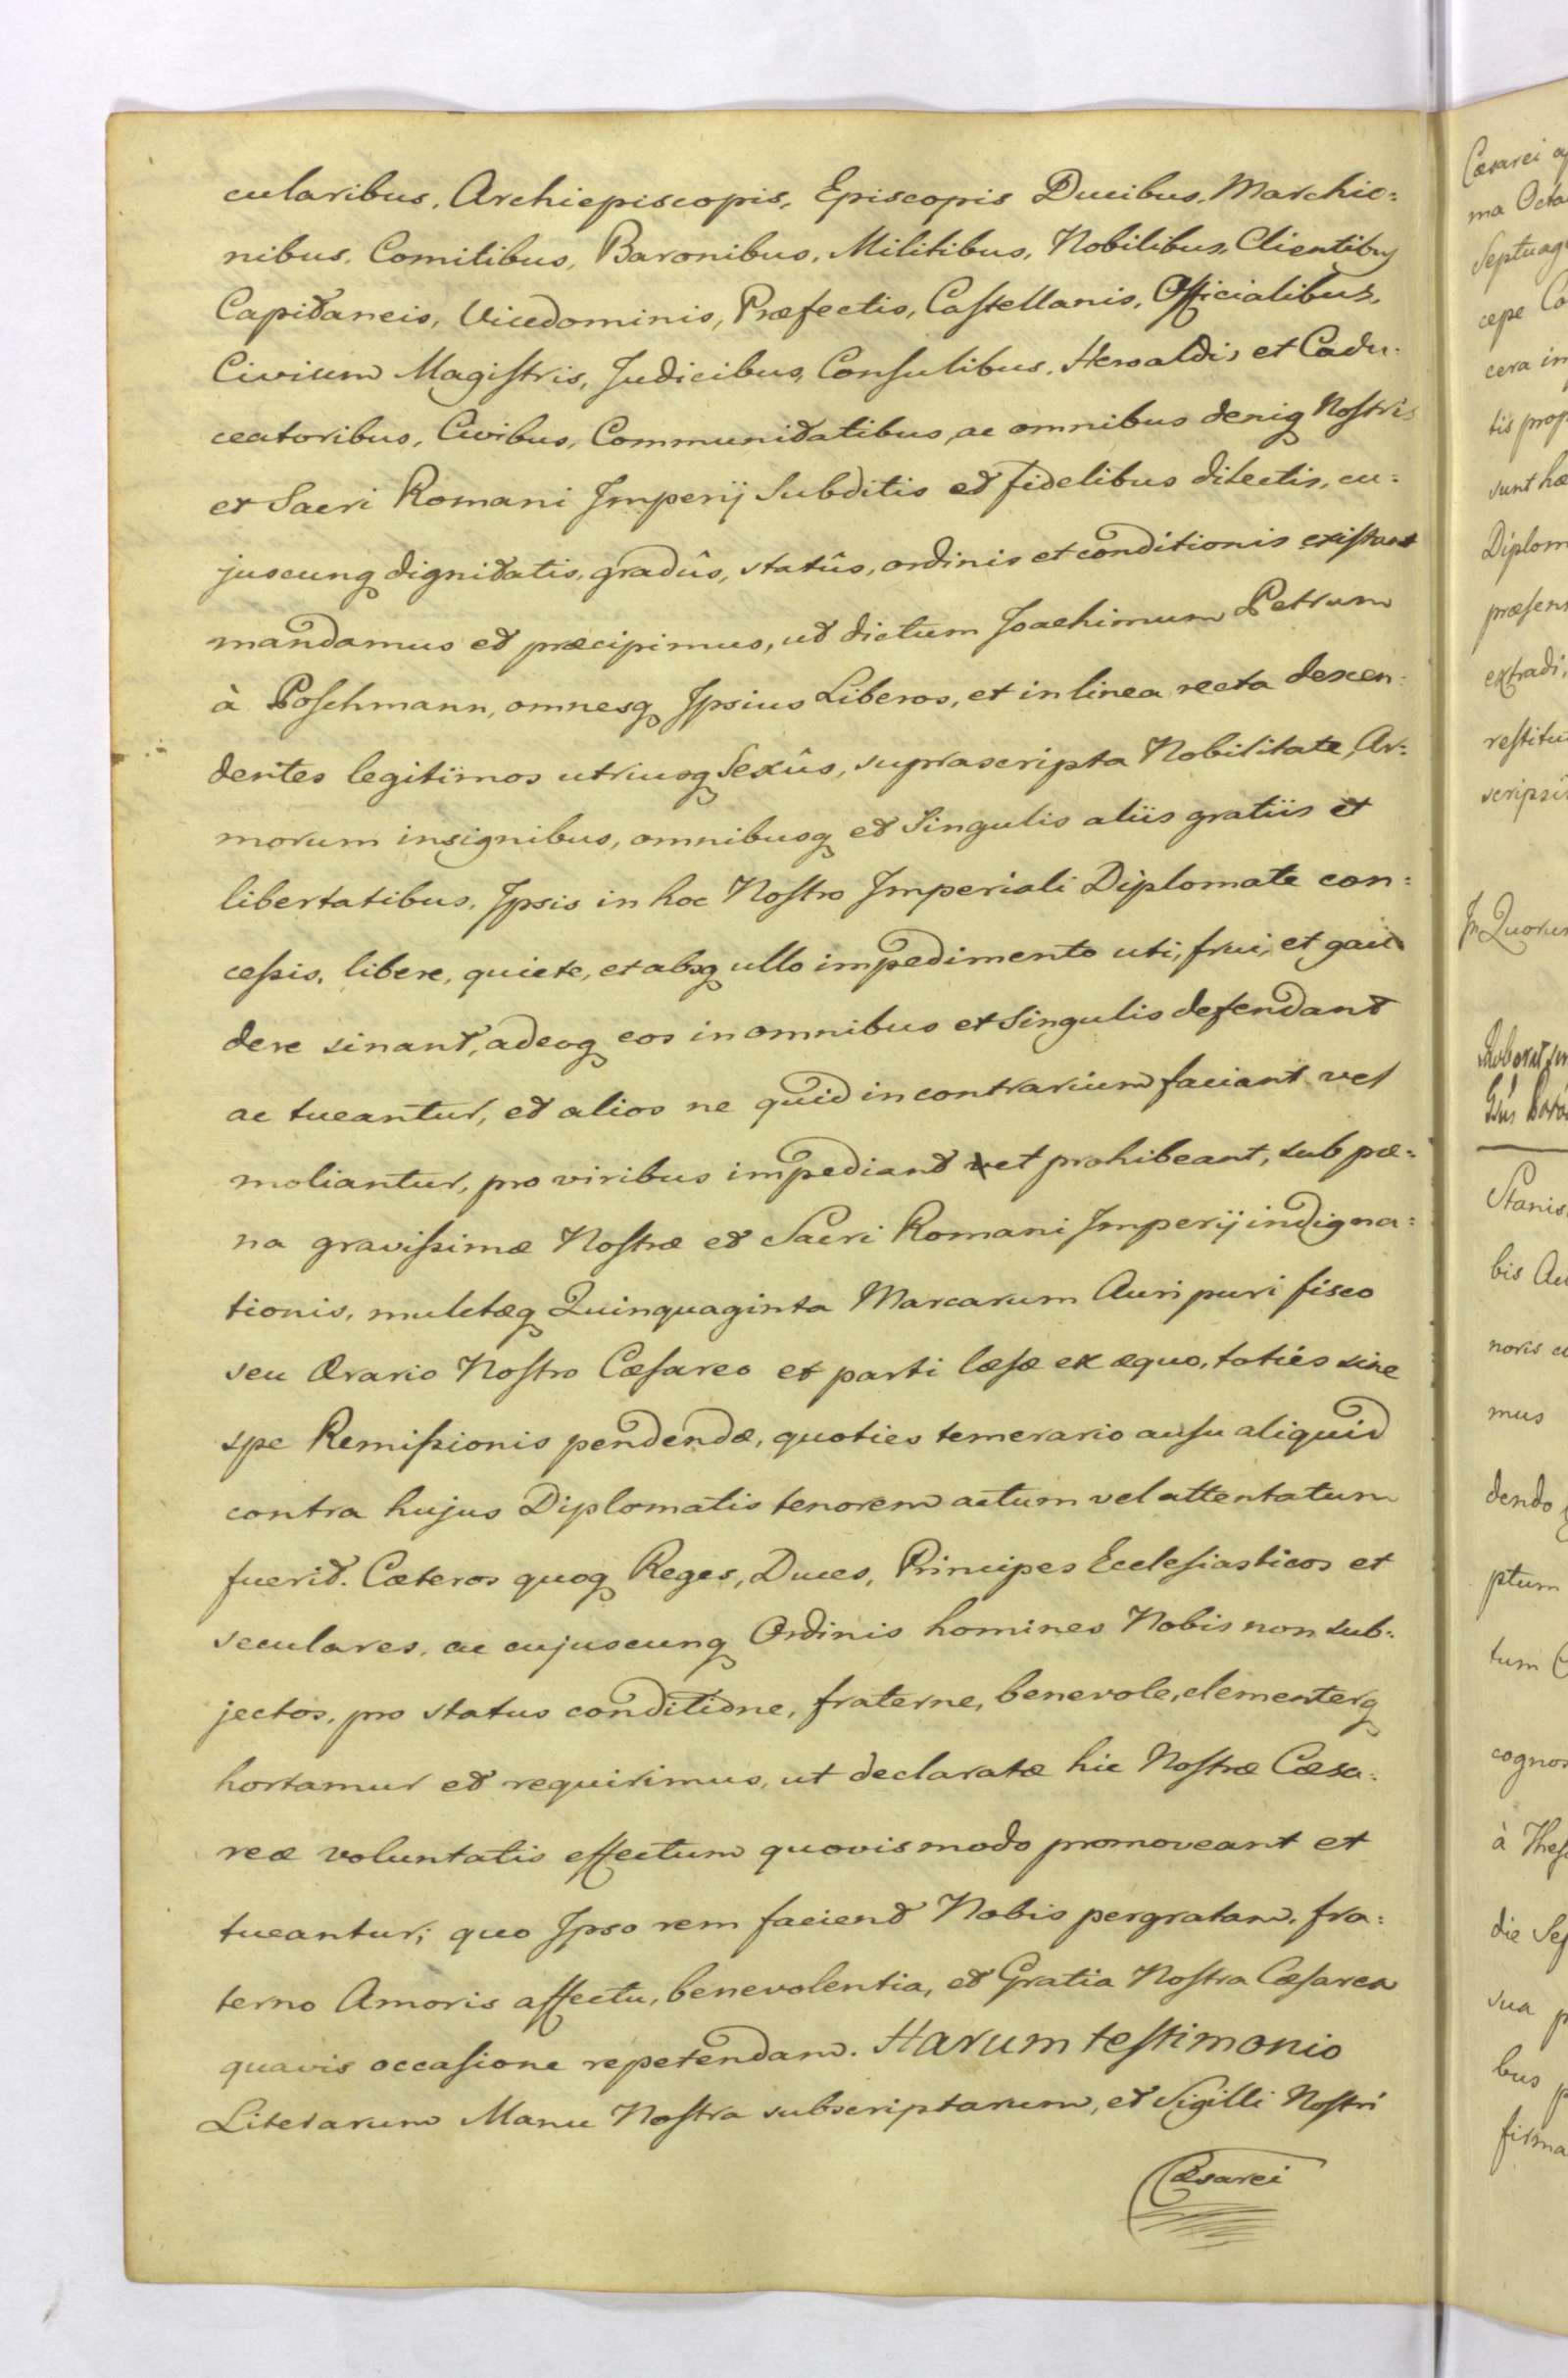 cularibus, Archiepiscopis, Episcopis Ducibus, Marchio=
nibus, Comitibus, Baronibus, Militibus, Nobilibus, Clientibus
Capitaneis, Vicedominis, Præfectis, Castellanis, Officialibus,
Civium Magistris, Judicibus, Consulibus, Heroaldis et Cadu=
ceatoribus, Civibus, Communitatibus, ac omnibus deniq Nostris
et Sacri Romani Imperij Subditis et fidelibus dilectis, cu=
juscunq dignitatis, gradûs, statûs, ordinis et conditionis existant
mandamus et præcipimus, ut dictum Joachimum Petrum
à Poschmann, omnesq Ipsius Liberos, et in linea recta descen=
dentes legitimos utriusq Sexûs, suprascripta Nobilitate, Ar=
morum insignibus, omnibusq et Singulis aliis gratiis et
libertatibus, Ipsis in hoc Nostro Imperiali Diplomate con=
cessis, libere, quiete, et absq ullo impedimento uti, frui, et gau
dere sinant, adeoq eos in omnibus et Singulis defendant
ac tueantur, et alios ne quid in contrarium faciant vel
moliantur, pro viribus impediant et prohibeant, sub pæ=
na gravissimæ Nostræ et Sacri Romani Imperij indigna=
tionis, mulctæq Quinquaginta Marcarum Auri puri fisco
seu Ærario Nostro Cæsareo et parti læsæ ex æquo, toties sine
spe Remissionis pendendæ, quoties temerario ausu aliquid
contra hujus Diplomatis tenorem actum vel attentatum
fuerit. Cæteros quoq Reges, Duces, Principes Ecclesiasticos et
seculares, ac cujuscunq Ordinis homines Nobis non sub=
jectos, pro status conditione, fraterne, benevole, clementerq
hortamur et requirimus, ut declaratæ hic Nostræ Cæsa=
reæ voluntatis effectum quovis modo promoveant et
tueantur; quo Ipso rem facient Nobis pergratam, fra=
terno Amoris affectu, benevolentia, et Gratia Nostra Cæsarea
quavis occasione repetendam. Harum testimonio
Literarum Manu Nostra subscriptarum, et Sigilli Nostri
Cæsarei
Cæsarei
ma
Septuag
cepe
cera in
tis prop
sunt hæ
Diplom
præsen
extradi
restitu
scripsi
In Quorum
Stanis
bis
noris
mus
dendo
ptum
tum
cognos
à Thes
die Sep
sua
bus
firma